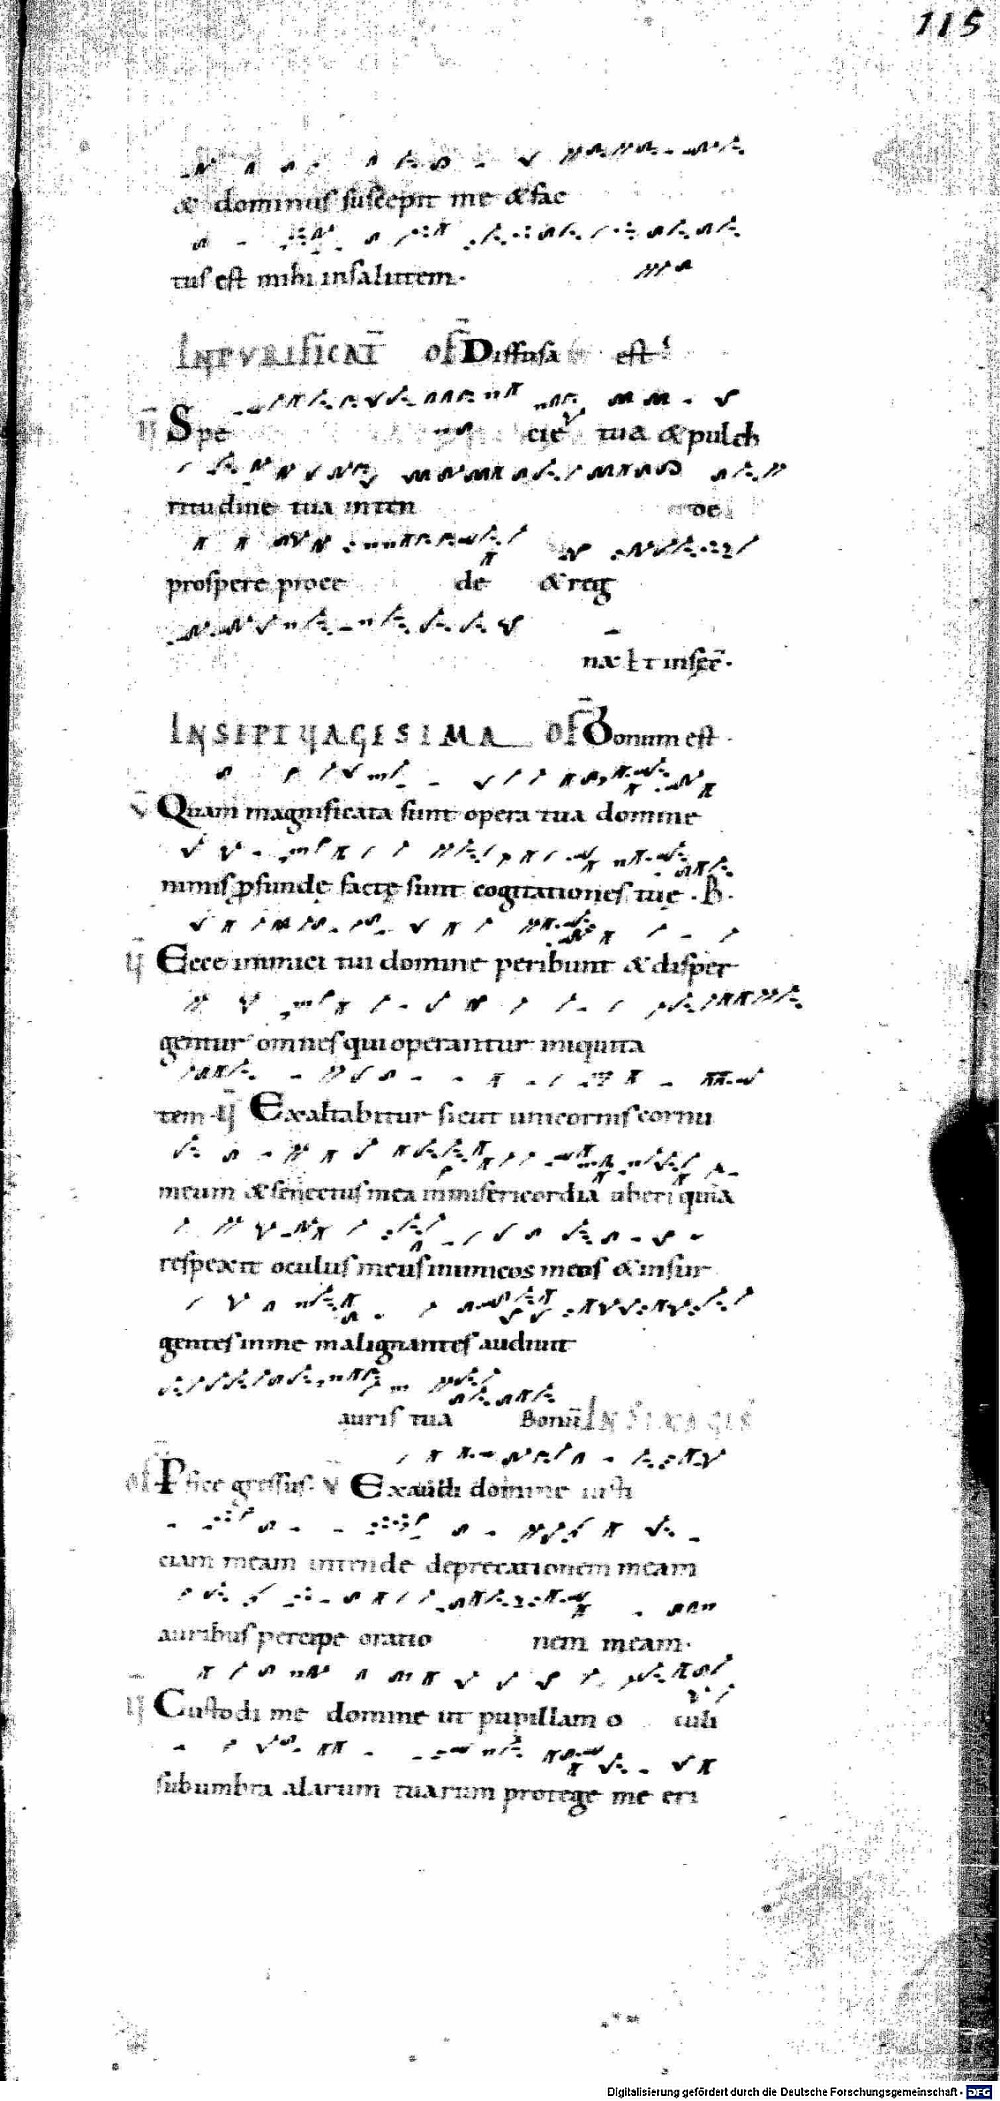 115
& dominus suscepit me & fac
tus est mihi insalutem.
INPURIFICAT̄ OF̄ Diffusa est
IĪ Spe cie tua & pulch
ritudine tua inten de
prospere proce de & reg
INSEPTUAGESIMA OF̄ Bonum est
V̄ Quam magnificata sunt opera tua domine
nimis ꝓfunde factę sunt cogitationes tuę . B.
IĪ Ecce inimici tui domine peribunt & disper
gentur omnes qui operantur iniquita
tem . IĪ Exaltabitur sicut unicornis cornu
meum & senectus mea inmisericordia uberi quia
respexit oculus meus inimicos meos & insur
gentes inme malignantes audiuit
auris tua Bonū IN SEXAGIS
OF̄ P̄fice gressus. V̄ Exaudi domine iusti
ciam meam intende deprecationem meam
auribus percipe oratio nem meam.
IĪ Custodi me domine ut pupillam o culi
subumbra alarum tuarum protege me eri
Digitalisierung gefördert durch die Deutsche Forschungsgemeinschaft - DFG